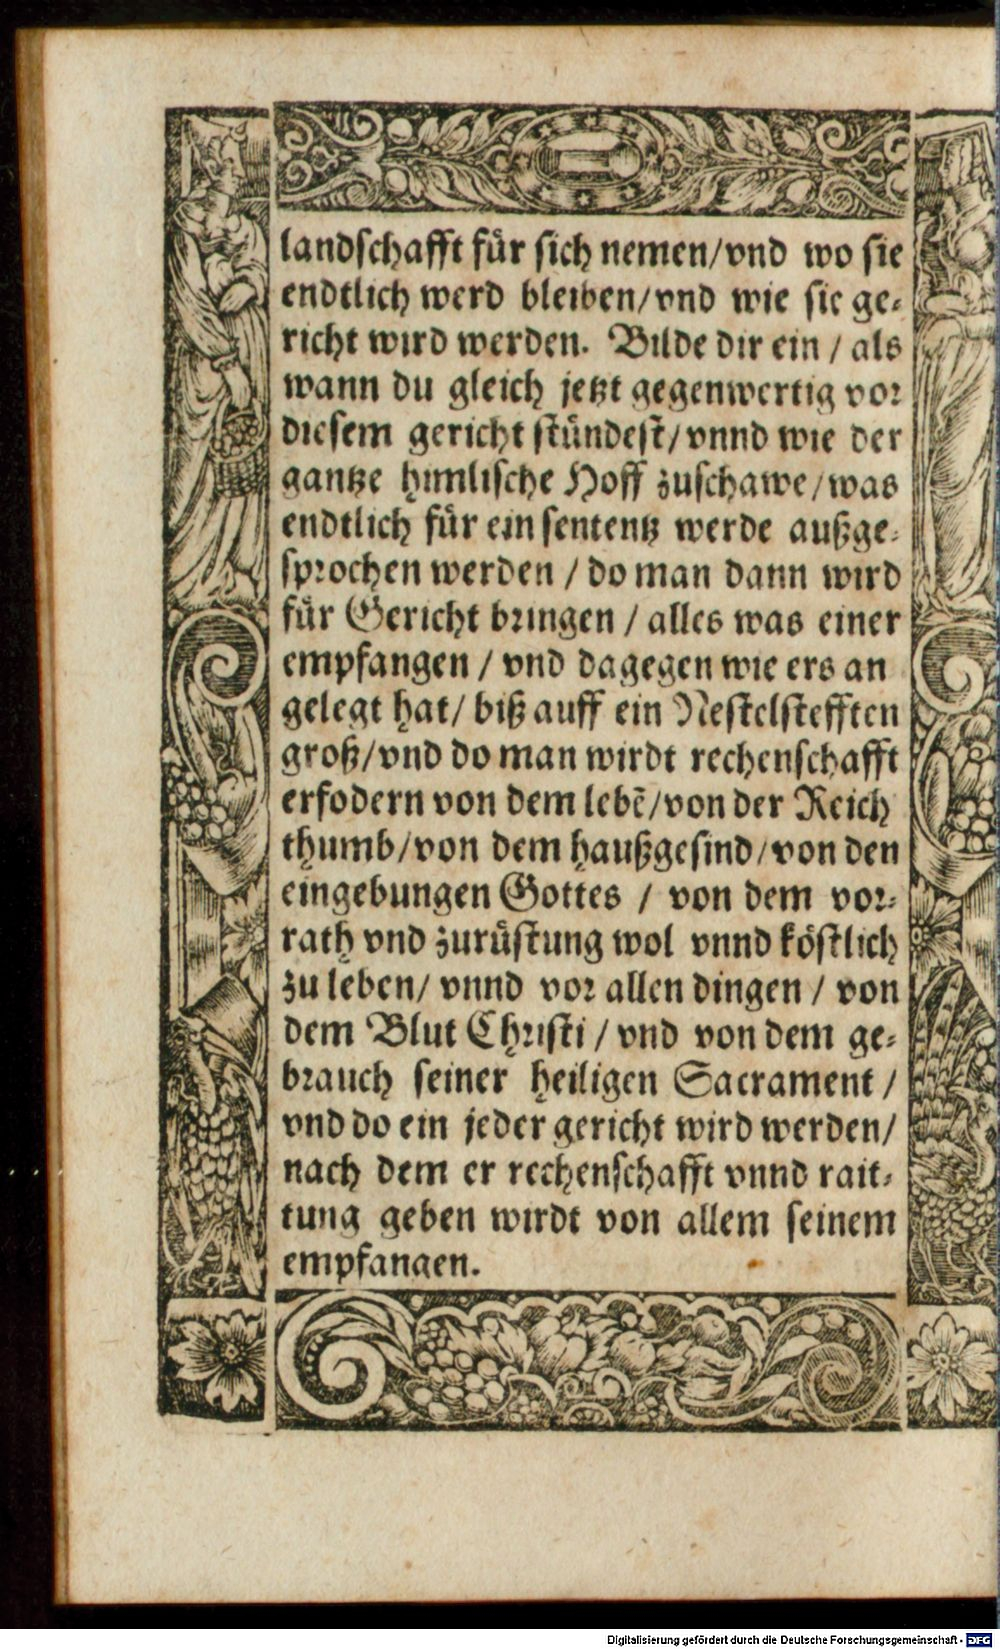 landschafft für sich nemen/vnd wo sie
endtlich werd bleiben/vnd wie sie ge-
richt wird werden. Bilde dir ein / als
wann du gleich jetzt gegenwertig vor
diesem gericht stündest/vnnd wie der
gantze himlische Hoff zuschawe/was
endtlich für ein sententz werde außge-
sprochen werden / do man dann wird
für Gericht bringen / alles was einer
empfangen / vnd dagegen wie ers an
gelegt hat/ biß auff ein Nestelstefften
groß/vnd do man wirdt rechenschafft
erfodern von dem lebē/von der Reich
thumb/von dem haußgesind/von den
eingebungen Gottes / von dem vor-
rath vnd zurüstung wol vnnd köstlich
zu leben/ vnnd vor allen dingen / von
dem Blut Christi / vnd von dem ge-
brauch seiner heiligen Sacrament /
vnd do ein jeder gericht wird werden/
nach dem er rechenschafft vnnd rait-
tung geben wirdt von allem seinem
empfangen.
Digitalisierung gefördert durch die Deutsche Forschungsgemeinschaft - DFG